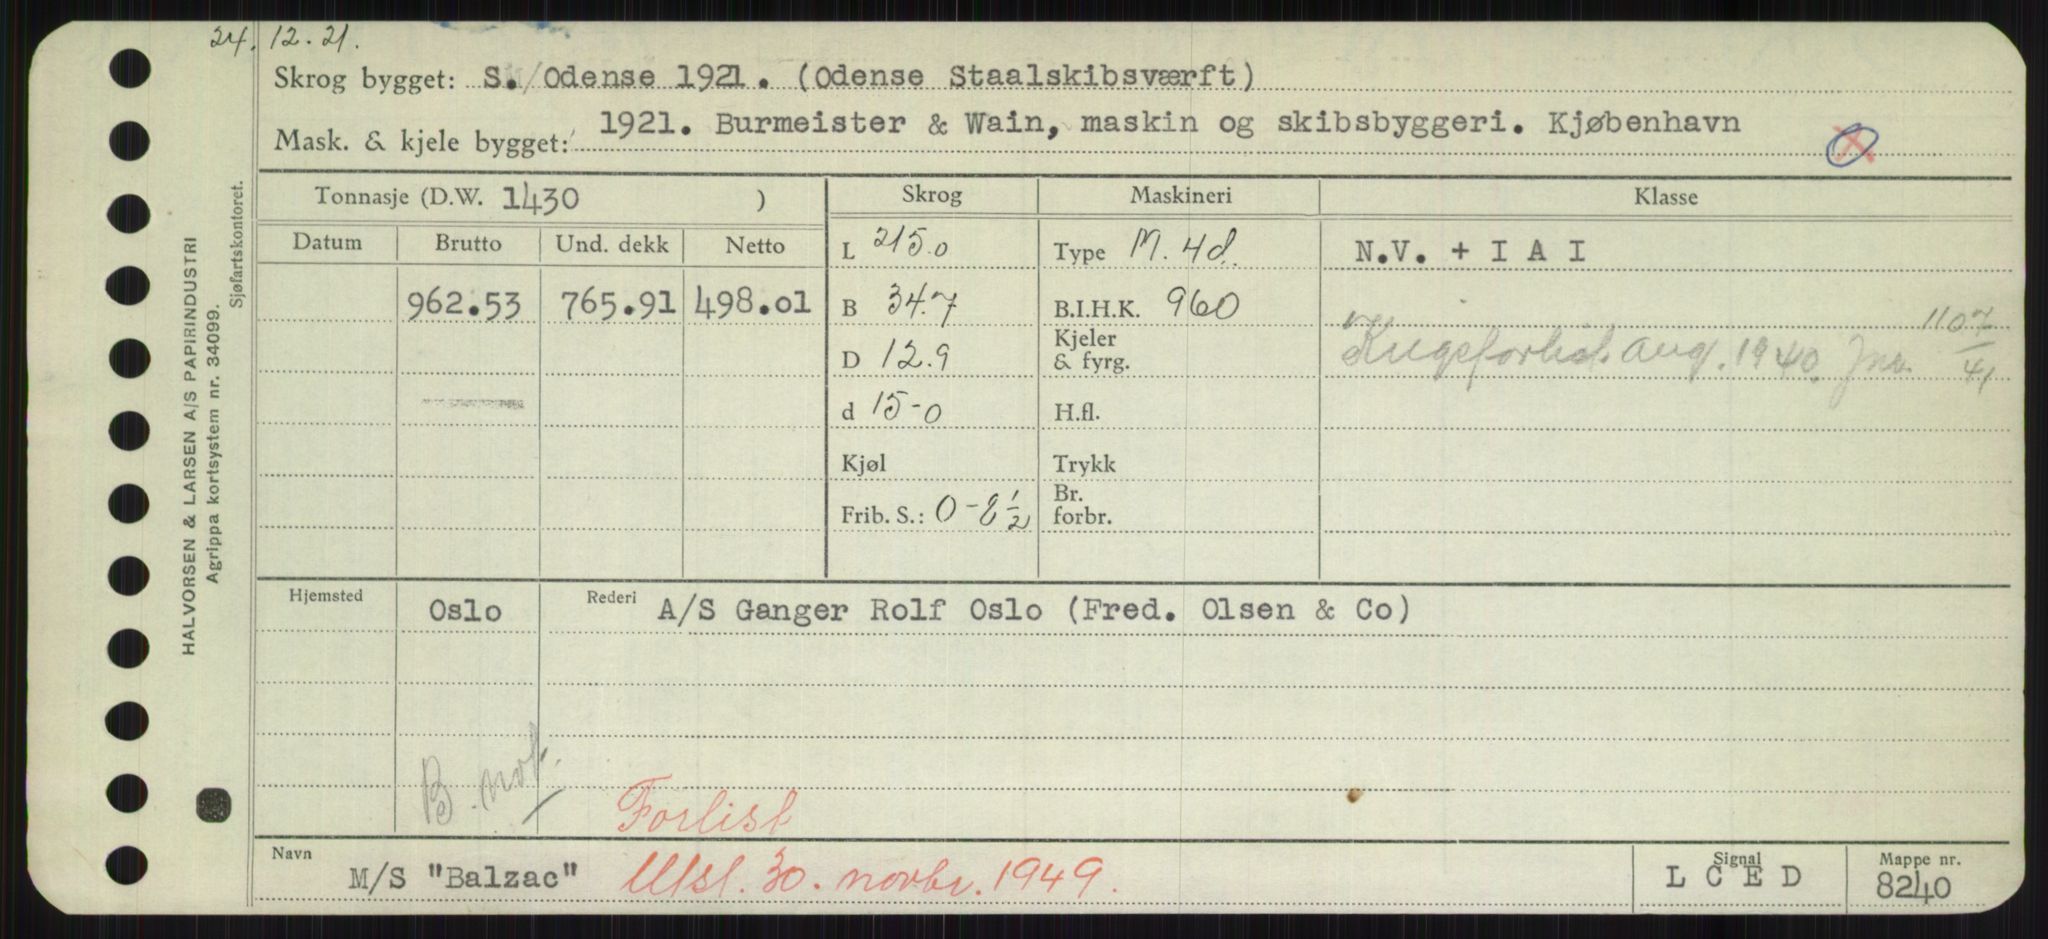 24. 12. 21.
Skrog bygget: S. Odense 1921. (Odense Staalskibsværft)
Mask. & kjele bygget: 1921. Burmeister & Wain, maskin og skibsbyggeri. Kjøbenhavn
Tonnasje (D.W. 1430 ) Skrog Maskineri Klasse
Datum Brutto Und. dekk Netto L 215.0 Type M. 4d. N.V. + I A I
962.53 765.91 498.01 B 34.7 B.I.H.K. 960
Kjeler & fyrg.
D 12.9
Krigsforlist aug. 1940. Jnr. 1107/41
d 15-0 H.fl.
Kjøl Trykk
Frib. S.: 0-8 1/2 Br. forbr.
Hjemsted Oslo Rederi A/S Ganger Rolf Oslo (Fred. Olsen & Co)
B. not.
Forlist
Navn M/S "Balzac" Utsl. 30. novbr. 1949. Signal L C E D Mappe nr. 8240
HALVORSEN & LARSEN A/S PAPIRINDUSTRI
Agrippa kortsystem nr. 34099.
Sjøfartskontoret.